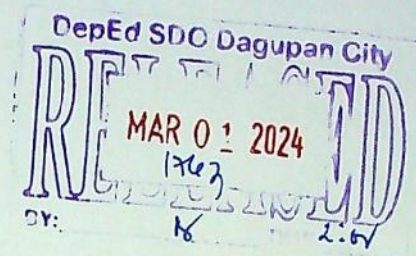 DepEd SDO Dagupan City
RELEASED
MAR 01 2024
1763
BY: